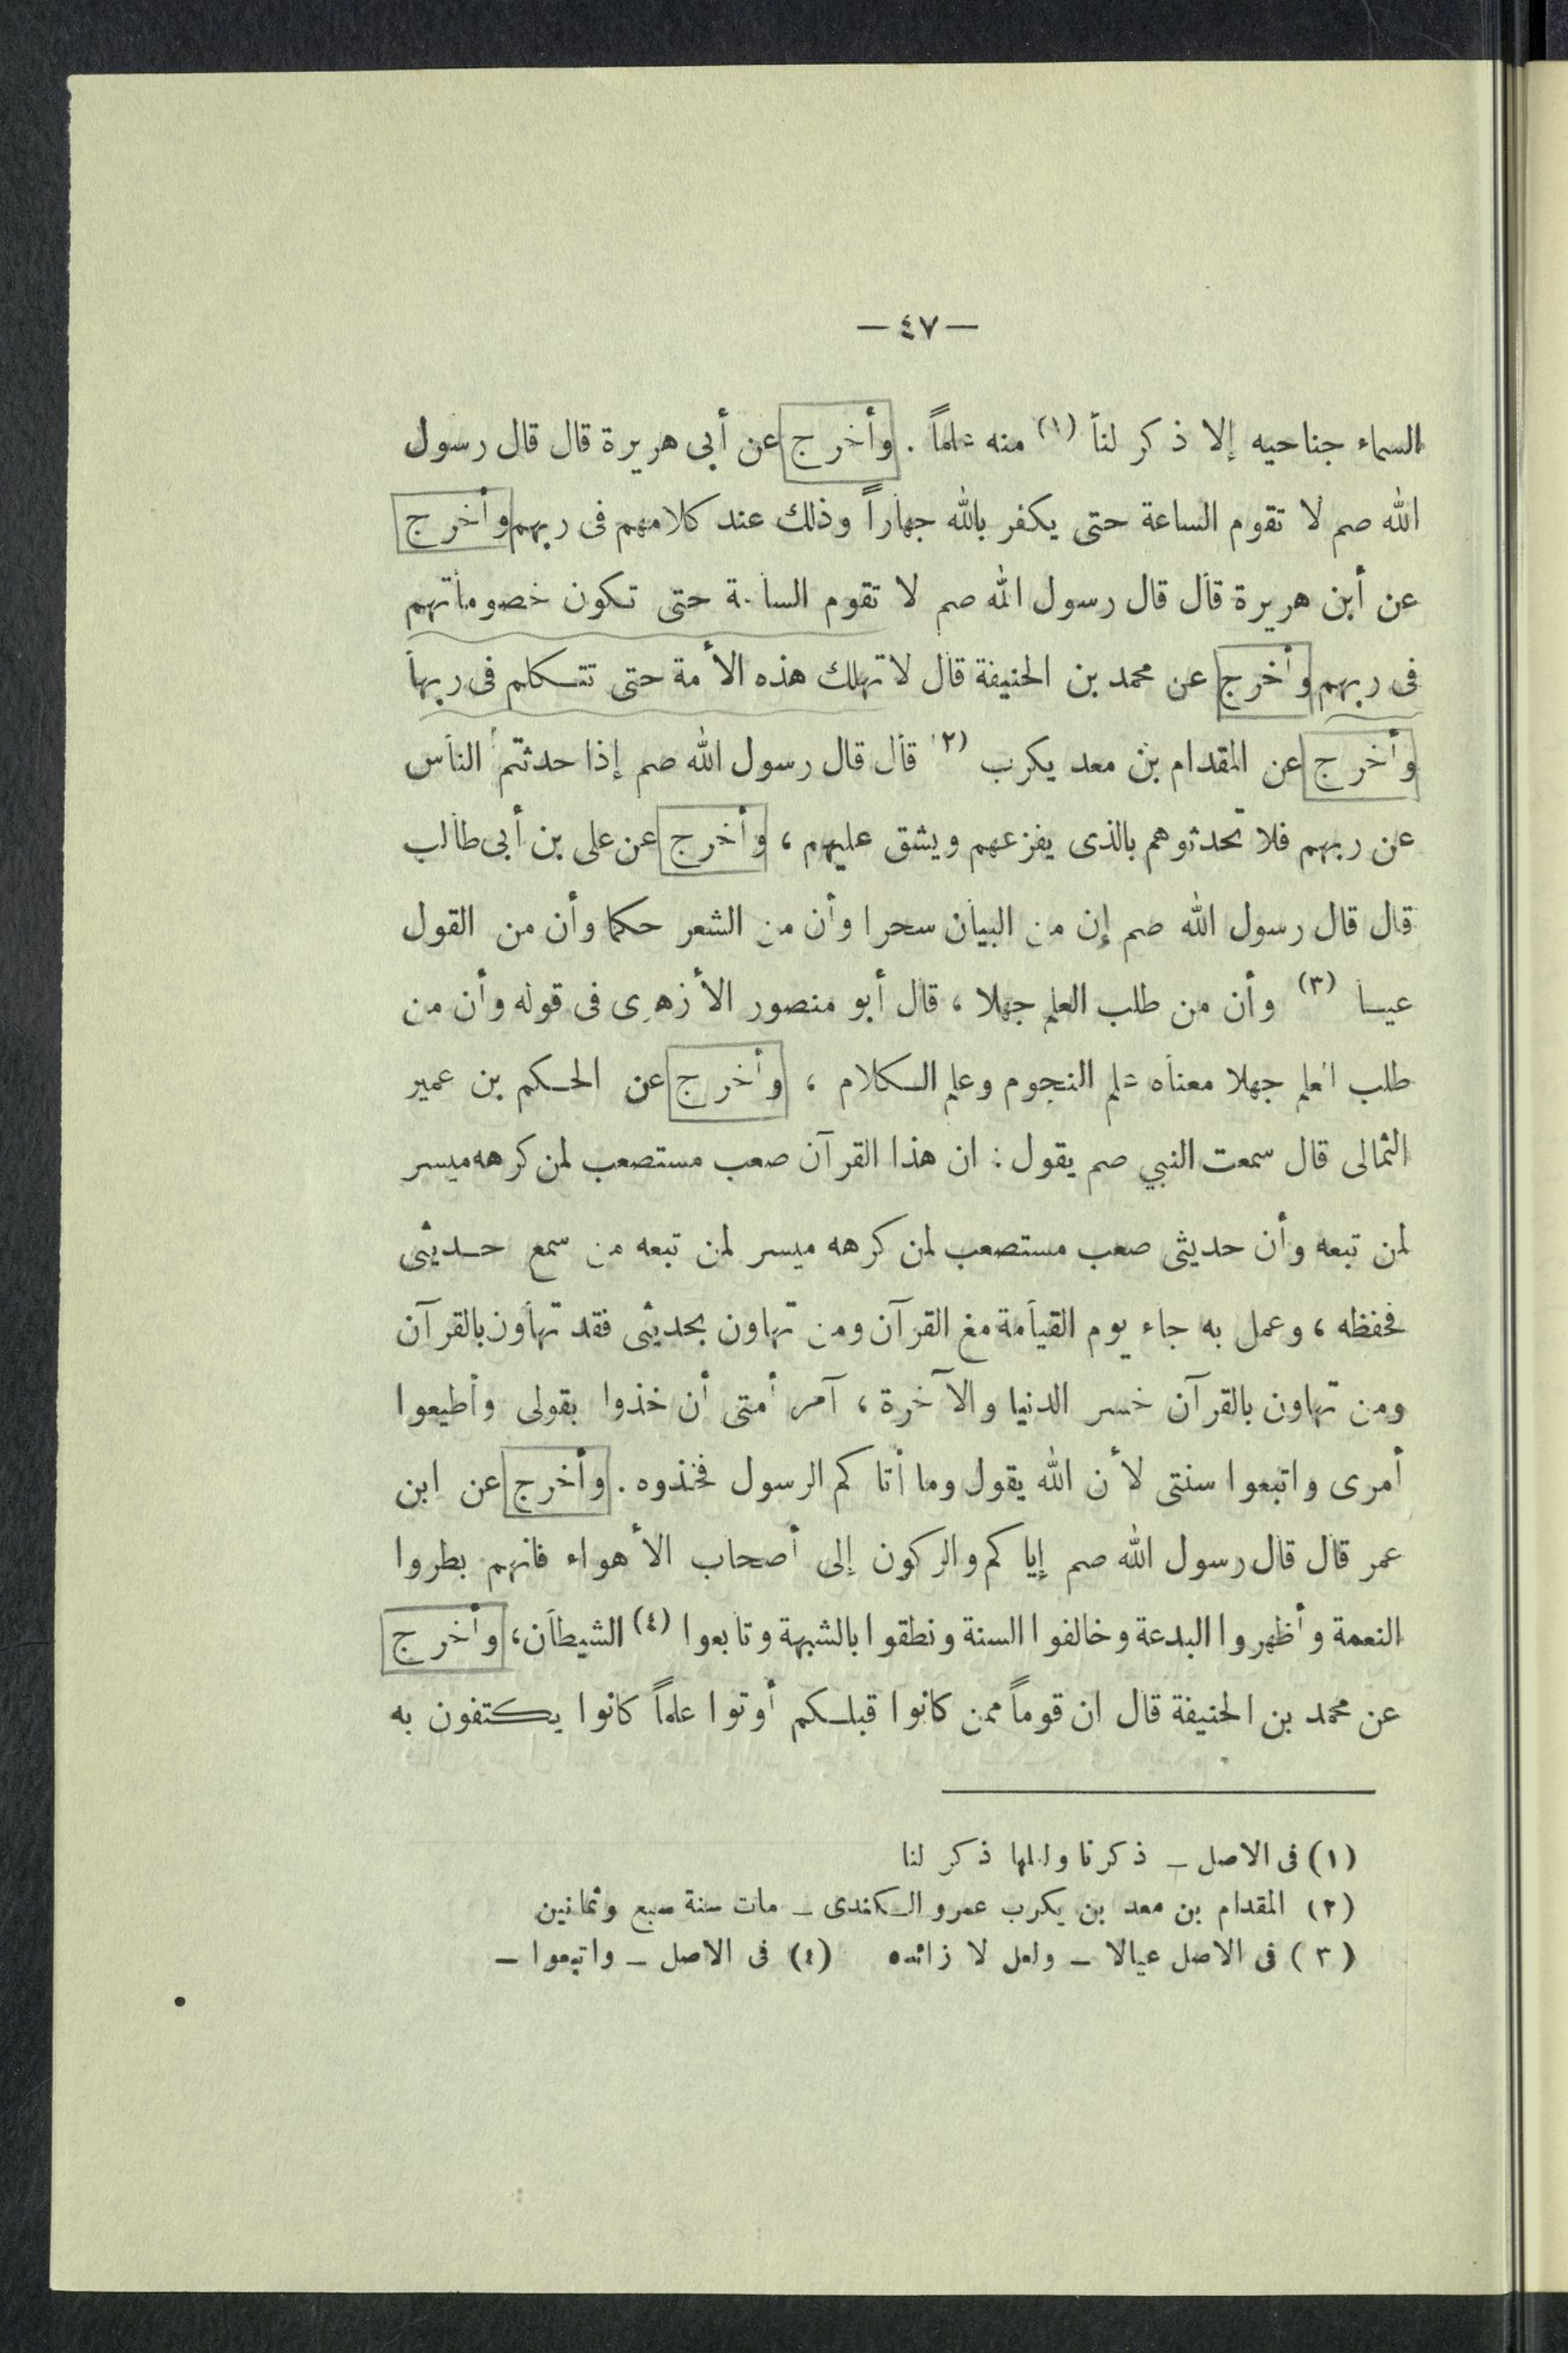 — ٤٧ —
السماء جناحيه إلا ذكر لنا (١) منه علماً . وأخرج عن أبى هريرة قال قال رسول
الله صم لا تقوم الساعة حتى يكفر بالله جهاراً وذلك عند كلامهم فى ربهم وأخرج
عن أبن هريرة قال قال رسول الله صم لا تقوم الساعة حتى تكون خصوماتهم
فى ربهم وأخرج عن محمد بن الحنيفة قال لا تهلك هذه الأمة حتى تتكلم فى ربها
وأخرج عن المقدام بن معد يكرب (٢) قال قال رسول الله صم إذا حدثتم الناس
عن ربهم فلا تحدثوهم بالذى يفزعهم ويشق عليهم ، وأخرج عن على بن أبى طالب
قال قال رسول الله صم إن من البيان سحرا وأن من الشعر حكما وأن من القول
عيا (٣) وأن من طلب العلم جهلا ، قال أبو منصور الأزهرى فى قوله وأن من
طلب العلم جهلا معناه علم النجوم وعلم الكلام ، وأخرج عن الحكم بن عمير
الثمالى قال سمعت النبي صم يقول : ان هذا القرآن صعب مستصعب لمن كرهه ميسر
لمن تبعه وأن حديثى صعب مستصعب لمن كرهه ميسر لمن تبعه من سمع حديثى
فحفظه ، وعمل به جاء يوم القيامة مغ القرآن ومن تهاون بحديثى فقد تهاون بالقرآن
ومن تهاون بالقرآن خسر الدنيا والآخرة ، آمر أمتى أن خذوا بقولى وأطيعوا
أمرى واتبعوا سنتى لأن الله يقول وما أتاكم الرسول فخذوه . وأخرج عن ابن
عمر قال قال رسول الله صم إياكم والركون إلى أصحاب الأهواء فانهم بطروا
النعمة وأظهروا البدعة وخالفوا السنة ونطقوا بالشبهة وتابعوا (٤) الشيطان ، وأخرج
عن محمد بن الحنيفة قال ان قوماً ممن كانوا قبلكم أوتوا علماً كانوا يكتفون به
(١) فى الاصل – ذكرنا ولعلها ذكر لنا
(٢) المقدام بن معد بن يكرب عمرو الكندى – مات سنة سبع وثمانين
(٣) فى الاصل عيالا – ولعل لا زائده (٤) فى الاصل – واتبعوا –